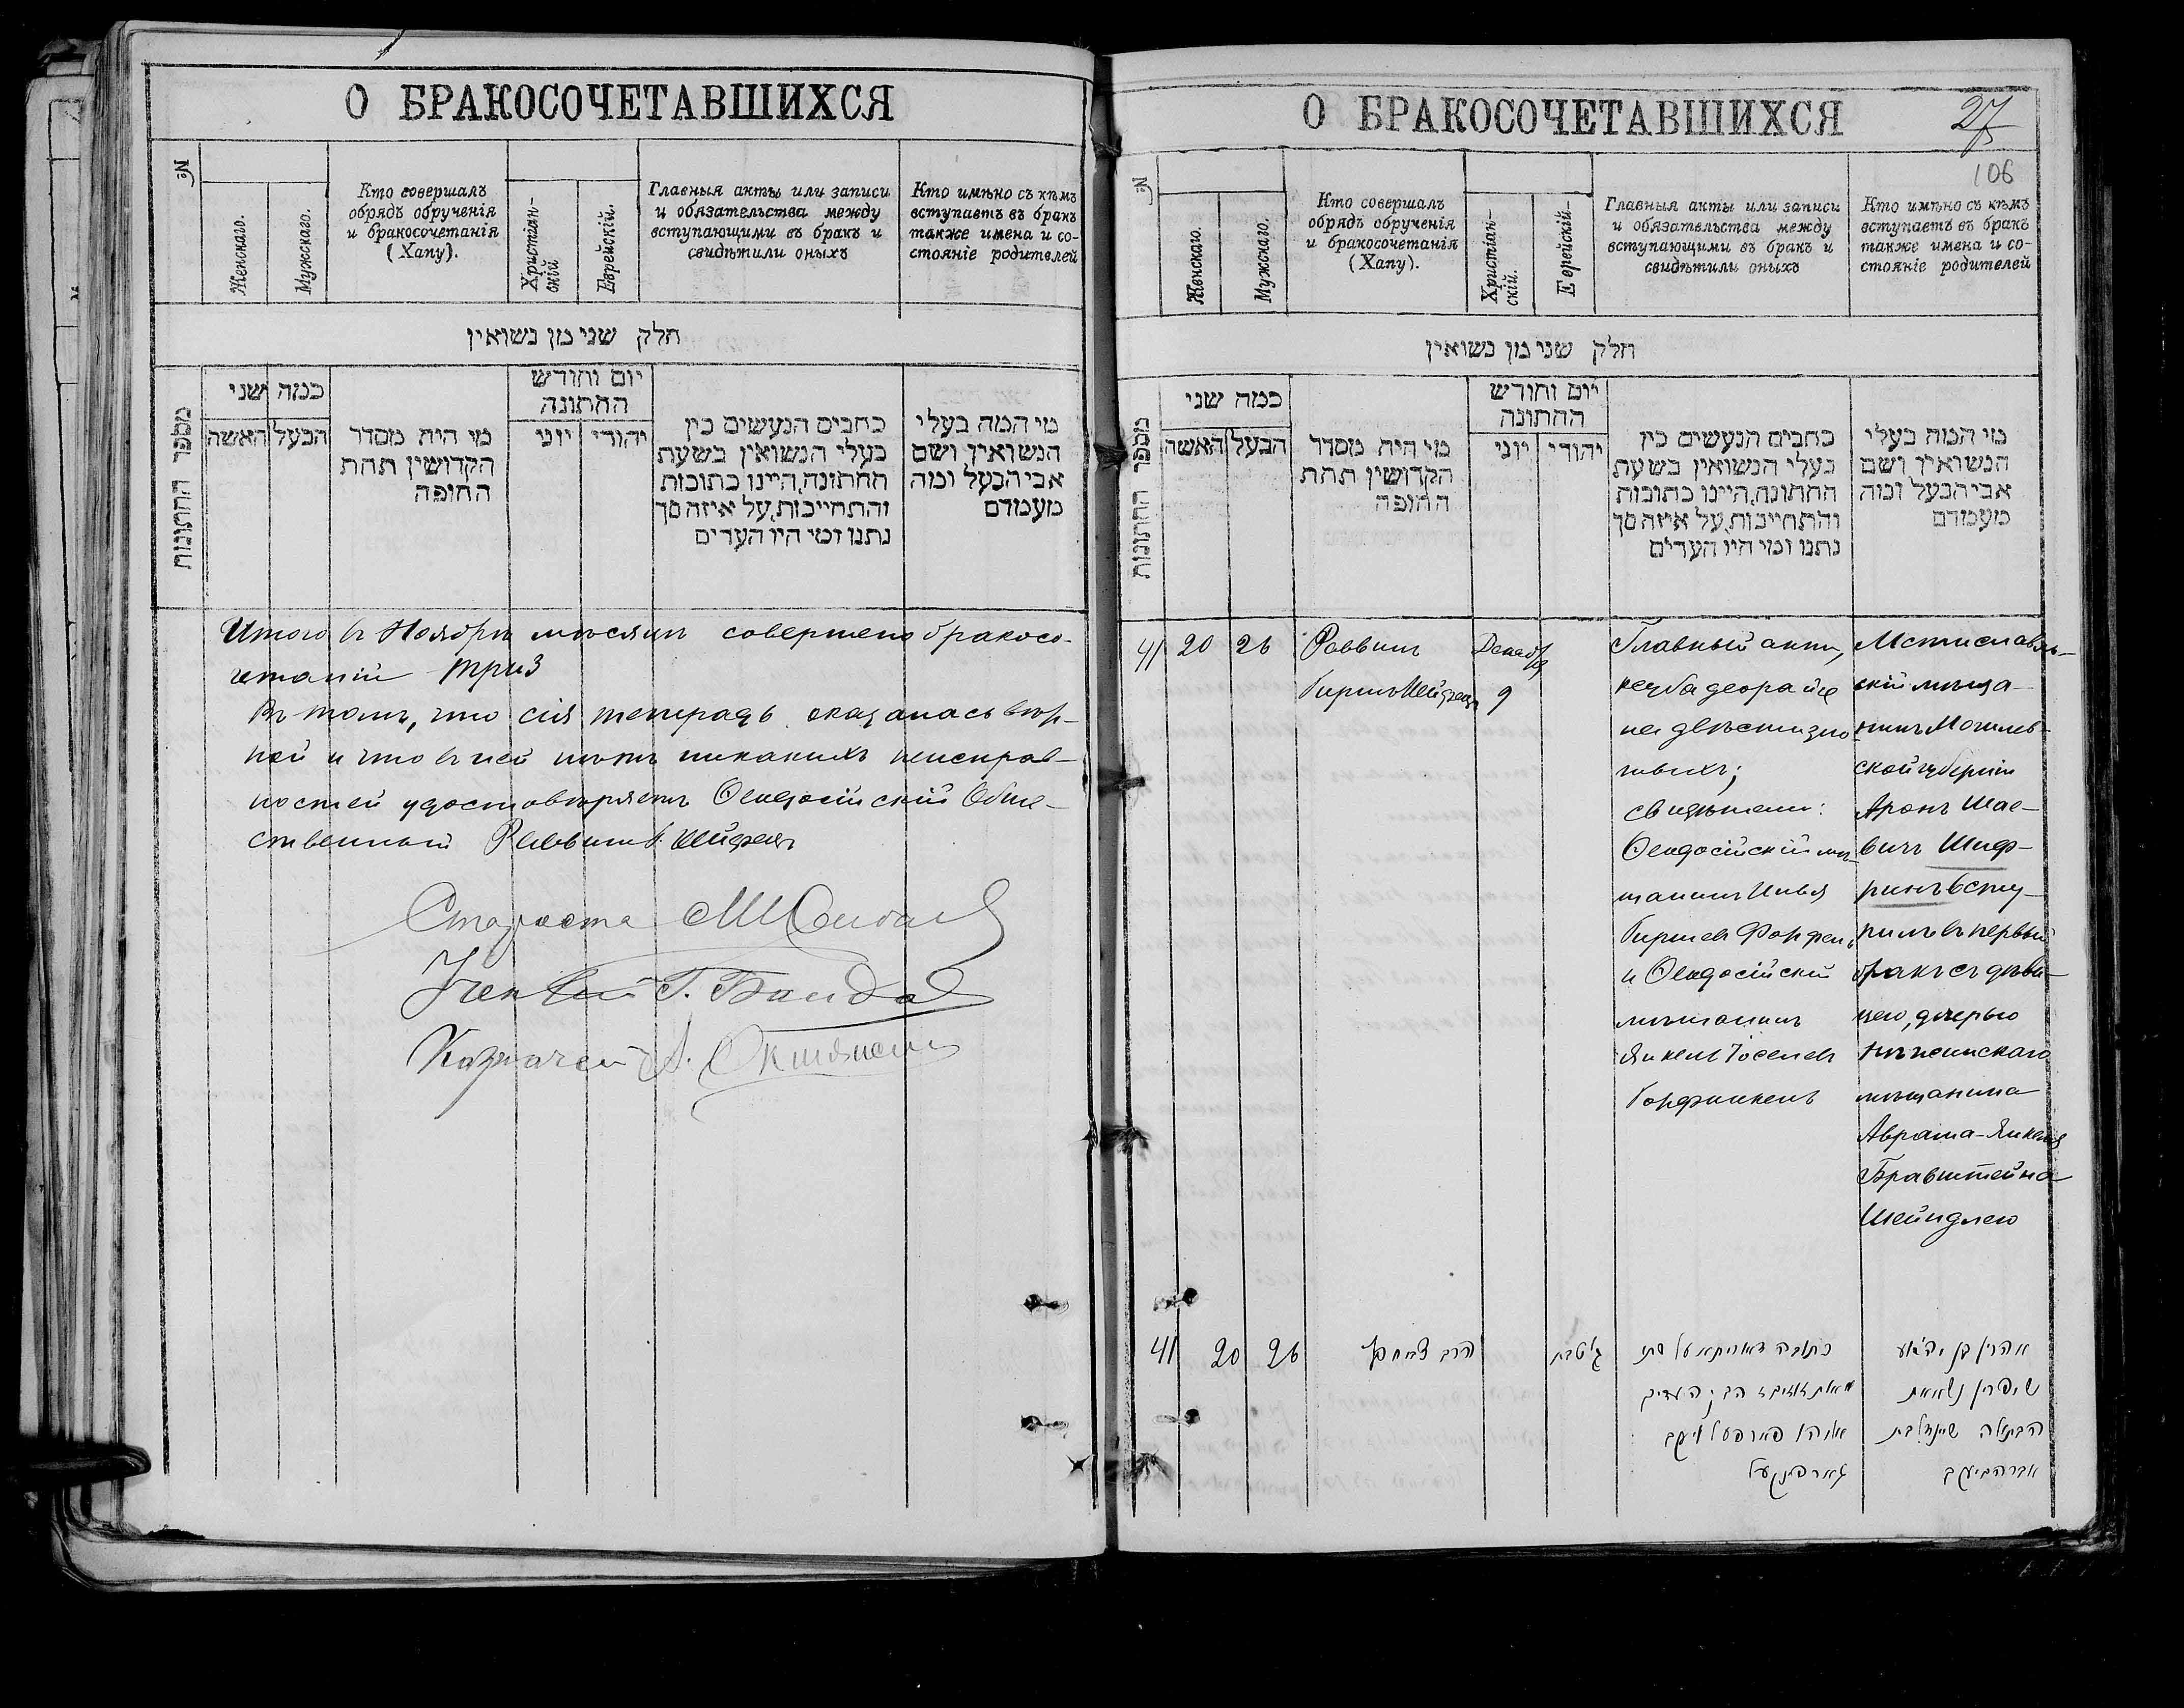 О БРАКОСОЧЕТАВШИХСЯ
№
Женскаго.
Мужскаго.
Кто совершалъ
обрядъ обрученія
и бракосочетанія
(Хапу).
Христіан-
скій
Еврейскій.
Главныя акты или записи
и обязательства между
вступающими въ бракъ и
свидѣтили оныхъ
Кто имѣно съ кѣмъ
вступаетъ въ бракъ
также имена и со-
стояніе родителей
חלק שני מן נשואין
מספר החתונות
כמה שני
האשה
הבעל
מי היה מסדר
הקדושין תחת
החופה
יום וחודש
החתונה
יוני
יהודי
כתבים הנעשים בין
בעלי הנשואין בשעת
החתונה, היינו כתובות
והתחייבות, על איזה סך
נתנו ומי היו העדים
מי המה בעלי
הנשואין ושם
אבי הבעל ומה
מעמדם
Итого въ Ноябрѣ мѣсяцѣ совершено бракосо-
четаній три 3
Въ томъ, что сія тетрадь оказалась вѣр-
ной и что въ ней нѣтъ никакихъ неисправ-
ностей удостовѣряетъ Ѳеодосійскій Обще-
ственный Раввинъ
Староста
Г. Бандал
Казначей А.
О БРАКОСОЧЕТАВШИХСЯ
27
106
№
Женскаго.
Мужскаго.
Кто совершалъ
обрядъ обрученія
и бракосочетанія
(Хапу).
Христіан-
скій.
Еврейскій-
Главныя акты или записи
и обязательства между
вступающими въ бракъ и
свидѣтили оныхъ
Кто имѣно съ кѣмъ
вступаетъ въ бракъ
также имена и со-
стояніе родителей
חלק שני מן נשואין
מספר החתונות
כמה שני
האשה
הבעל
מי היה מסדר
הקדושין תחת
החופה
יום וחודש
החתונה
יוני
יהודי
כתבים הנעשים בין
בעלי הנשואין בשעת
החתונה, היינו כתובות
והתחייבות, על איזה סך
נתנו ומי היו העדים
מי המה בעלי
הנשואין ושם
אבי הבעל ומה
מעמדם
41 20 26 Раввинъ
Декабря
9
Главный актъ,
кетуба деорайсе
на двѣсти зло-
тихъ;
свидѣтели:
Ѳеодосійскій мѣ-
щанинъ
и Ѳеодосійскій
мѣщанинъ
Янкель Іоселевъ
Гарфинкель
Мстиславль-
скій мѣща-
нинъ Могилев-
ской губерніи
Аронъ Шае-
вичъ Шиф-
ринъ всту-
пилъ въ первый
бракъ съ дѣви-
цею, дочерью
Нѣжинскаго
мѣщанина
Аврама-Янкеля
Бравштейна
Шейндлею
41 20 26
הרב
ג' טבת
כתובה דאורייתא על סך
יעקב
גארפינקעל
אהרון בן
שיפרין נשא את
הבתולה שיינדל בת